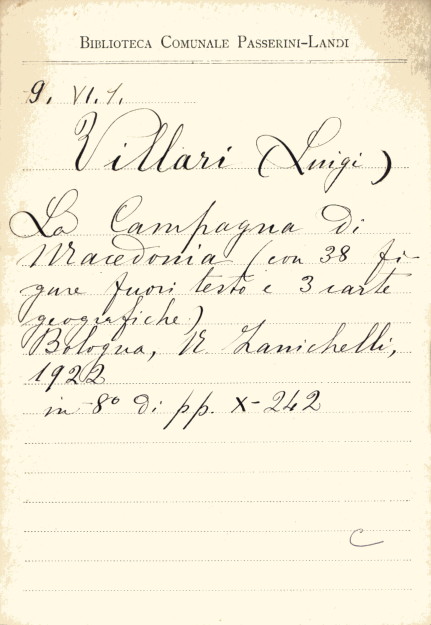 BIBLIOTECA COMUNALE PASSERINI-LANDI
9. VI. 1.
Villari (Luigi)
La Campagna di
Macedonia (con 38 fi-
gure fuori testo e 3 carte
geografiche)
Bologna, N. Zanichelli,
1922
in 8° di pp. X-242
C